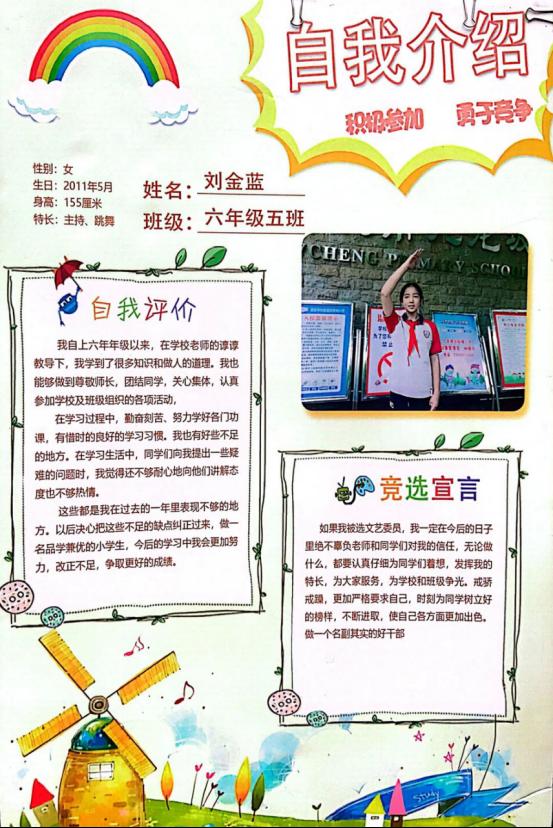 自我介绍
积极参加 勇于竞争
性别：女
生日：2011年5月
身高：155厘米
特长：主持、跳舞
姓名：刘金蓝
班级：六年级五班
CHENG PRIMARY SCHOO
自我评价
我自上六年年级以来，在学校老师的谆谆
教导下，我学到了很多知识和做人的道理。我也
能够做到尊敬师长，团结同学，关心集体，认真
参加学校及班级组织的各项活动，
在学习过程中，勤奋刻苦、努力学好各门功
课，有惜时的良好的学习习惯。我也有好些不足
的地方。在学习生活中，同学们向我提出一些疑
难的问题时，我觉得还不够耐心地向他们讲解态
度也不够热情。
这些都是我在过去的一年里表现不够的地
方。以后决心把这些不足的缺点纠正过来，做一
名品学兼优的小学生，今后的学习中我会更加努
力，改正不足，争取更好的成绩。
竞选宣言
如果我被选文艺委员，我一定在今后的日子
里绝不辜负老师和同学们对我的信任，无论做
什么，都要认真仔细为同学们着想，发挥我的
特长，为大家服务，为学校和班级争光。戒骄
戒躁，更加严格要求自己，时刻为同学树立好
的榜样，不断进取，使自己各方面更加出色。
做一个名副其实的好干部
Study